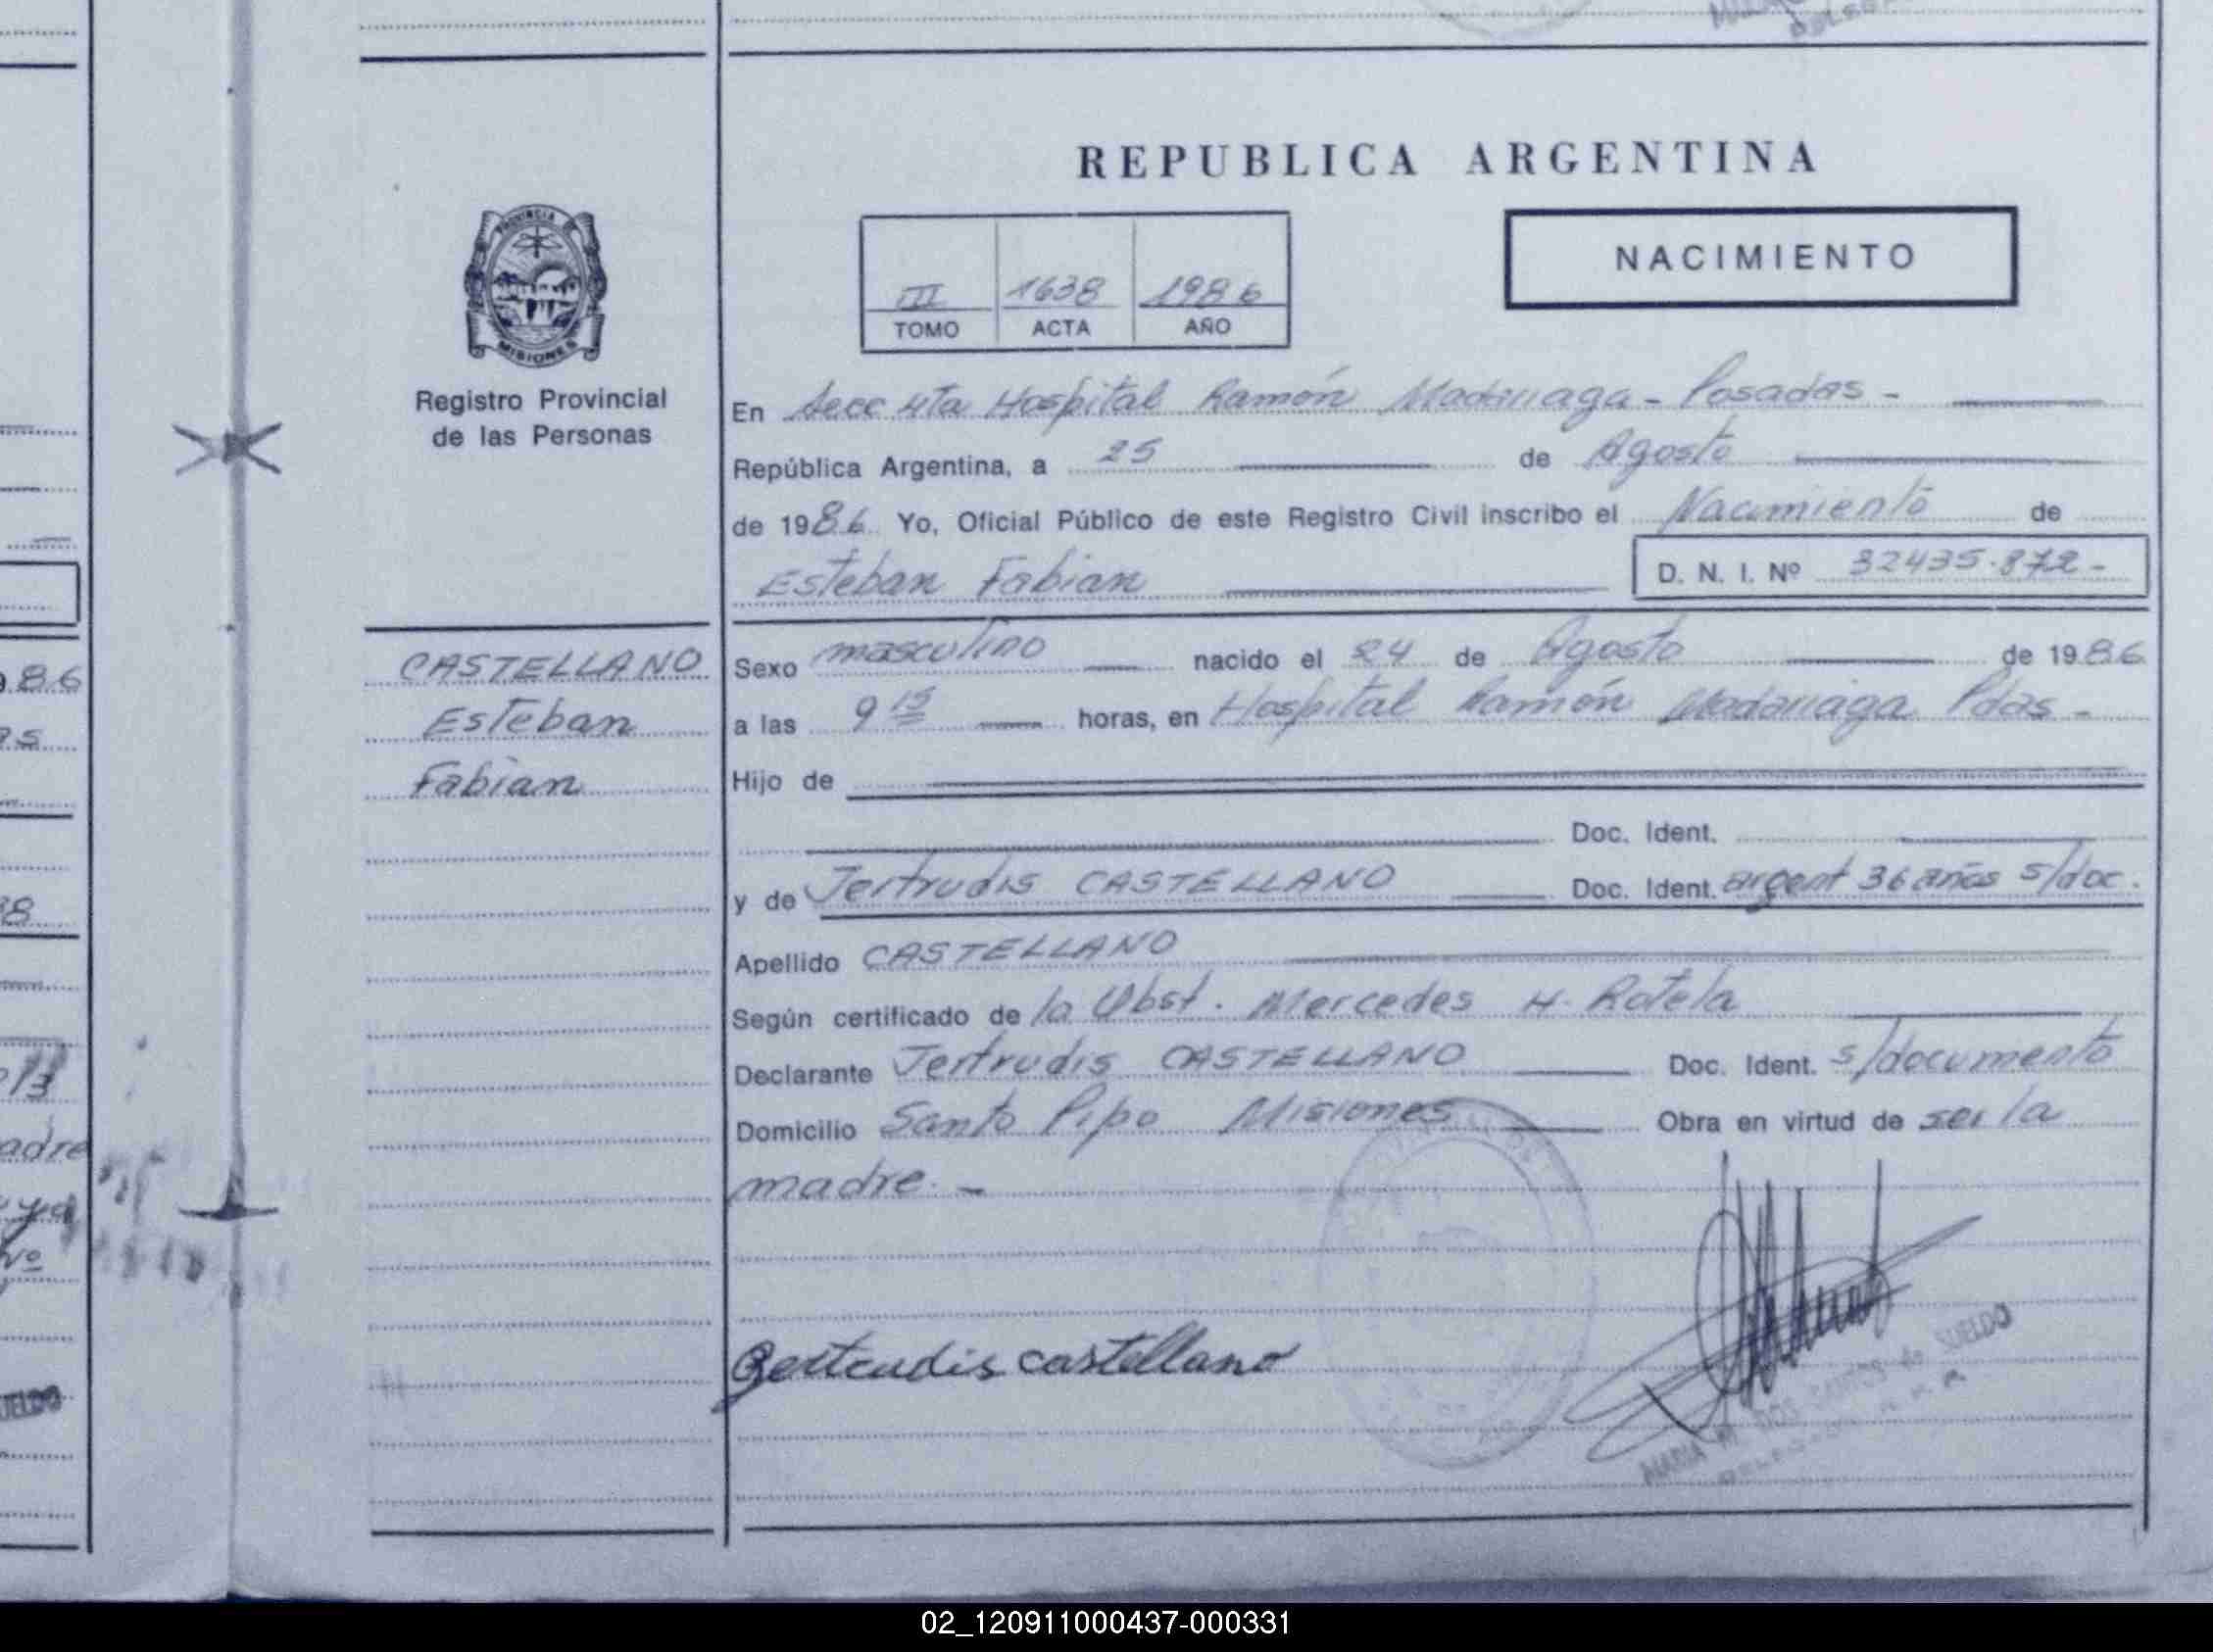 REPUBLICA ARGENTINA
NACIMIENTO
PROVINCIA
MISIONES
Registro Provincial
de las Personas
III 1638 1986
TOMO ACTA AÑO
En Secc 4ta Hospital Ramón Madariaga - Posadas -
República Argentina, a 25 de Agosto
de 1986 Yo, Oficial Público de este Registro Civil inscribo el Nacimiento de
Esteban Fabian D. N. I. Nº 32435.872 -
CASTELLANO
Esteban
Fabian
Sexo masculino nacido el 24 de Agosto de 1986
a las 9 15 horas, en Hospital Ramón Madariaga Pdas -
Hijo de
Doc. Ident.
y de Jertrudis CASTELLANO Doc. Ident. argent 36 años s/doc.
Apellido CASTELLANO
Según certificado de la Obst. Mercedes H. Rotela
Declarante Jertrudis CASTELLANO Doc. Ident. s/documento
Domicilio Santo Pipo Misiones Obra en virtud de ser la
madre. -
Gertrudis castellano
MARIA SUELDO
986
adre
02_120911000437-000331